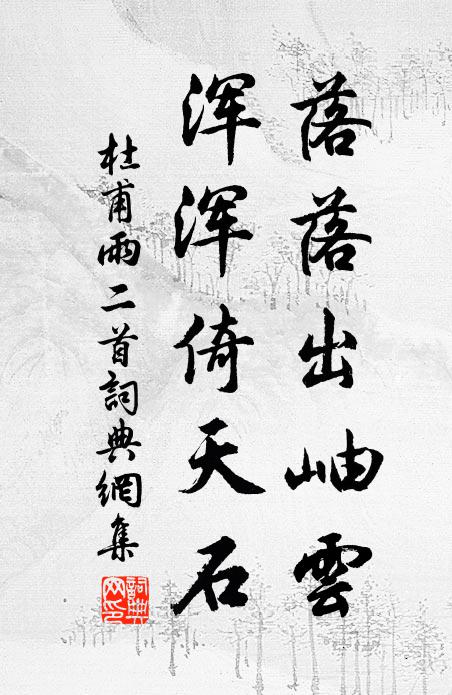 落落出岫雲
浑浑倚天石
杜甫雨二首詞典網集
詞典
网印